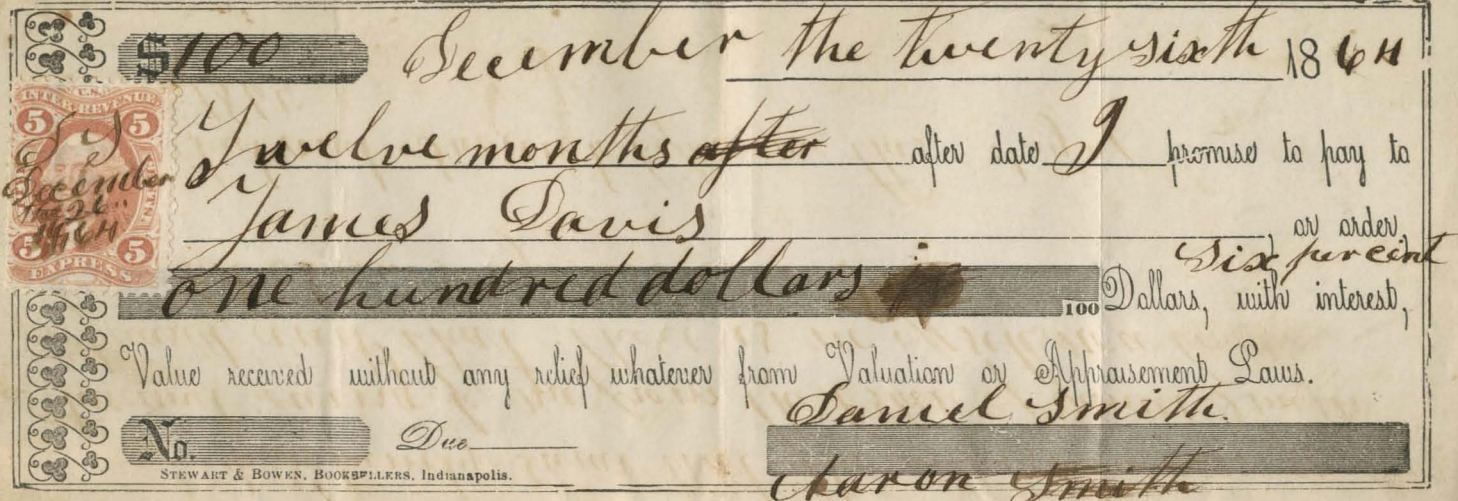 $100 December the twenty sixth 1864
Twelve months after after date I promise to pay to
James Davis, or order,
six percent
one hundred dollars 100 Dollars, with interest,
Value received without any relief whatever from Valuation or Appraisement Laws.
Daniel Smith
No. Due
Aaron Smith
STEWART & BOWEN, BOOKSELLERS, Indianapolis.
U.S.
INTER. REVENUE
5 5
December
26
1864
5 5
EXPRESS